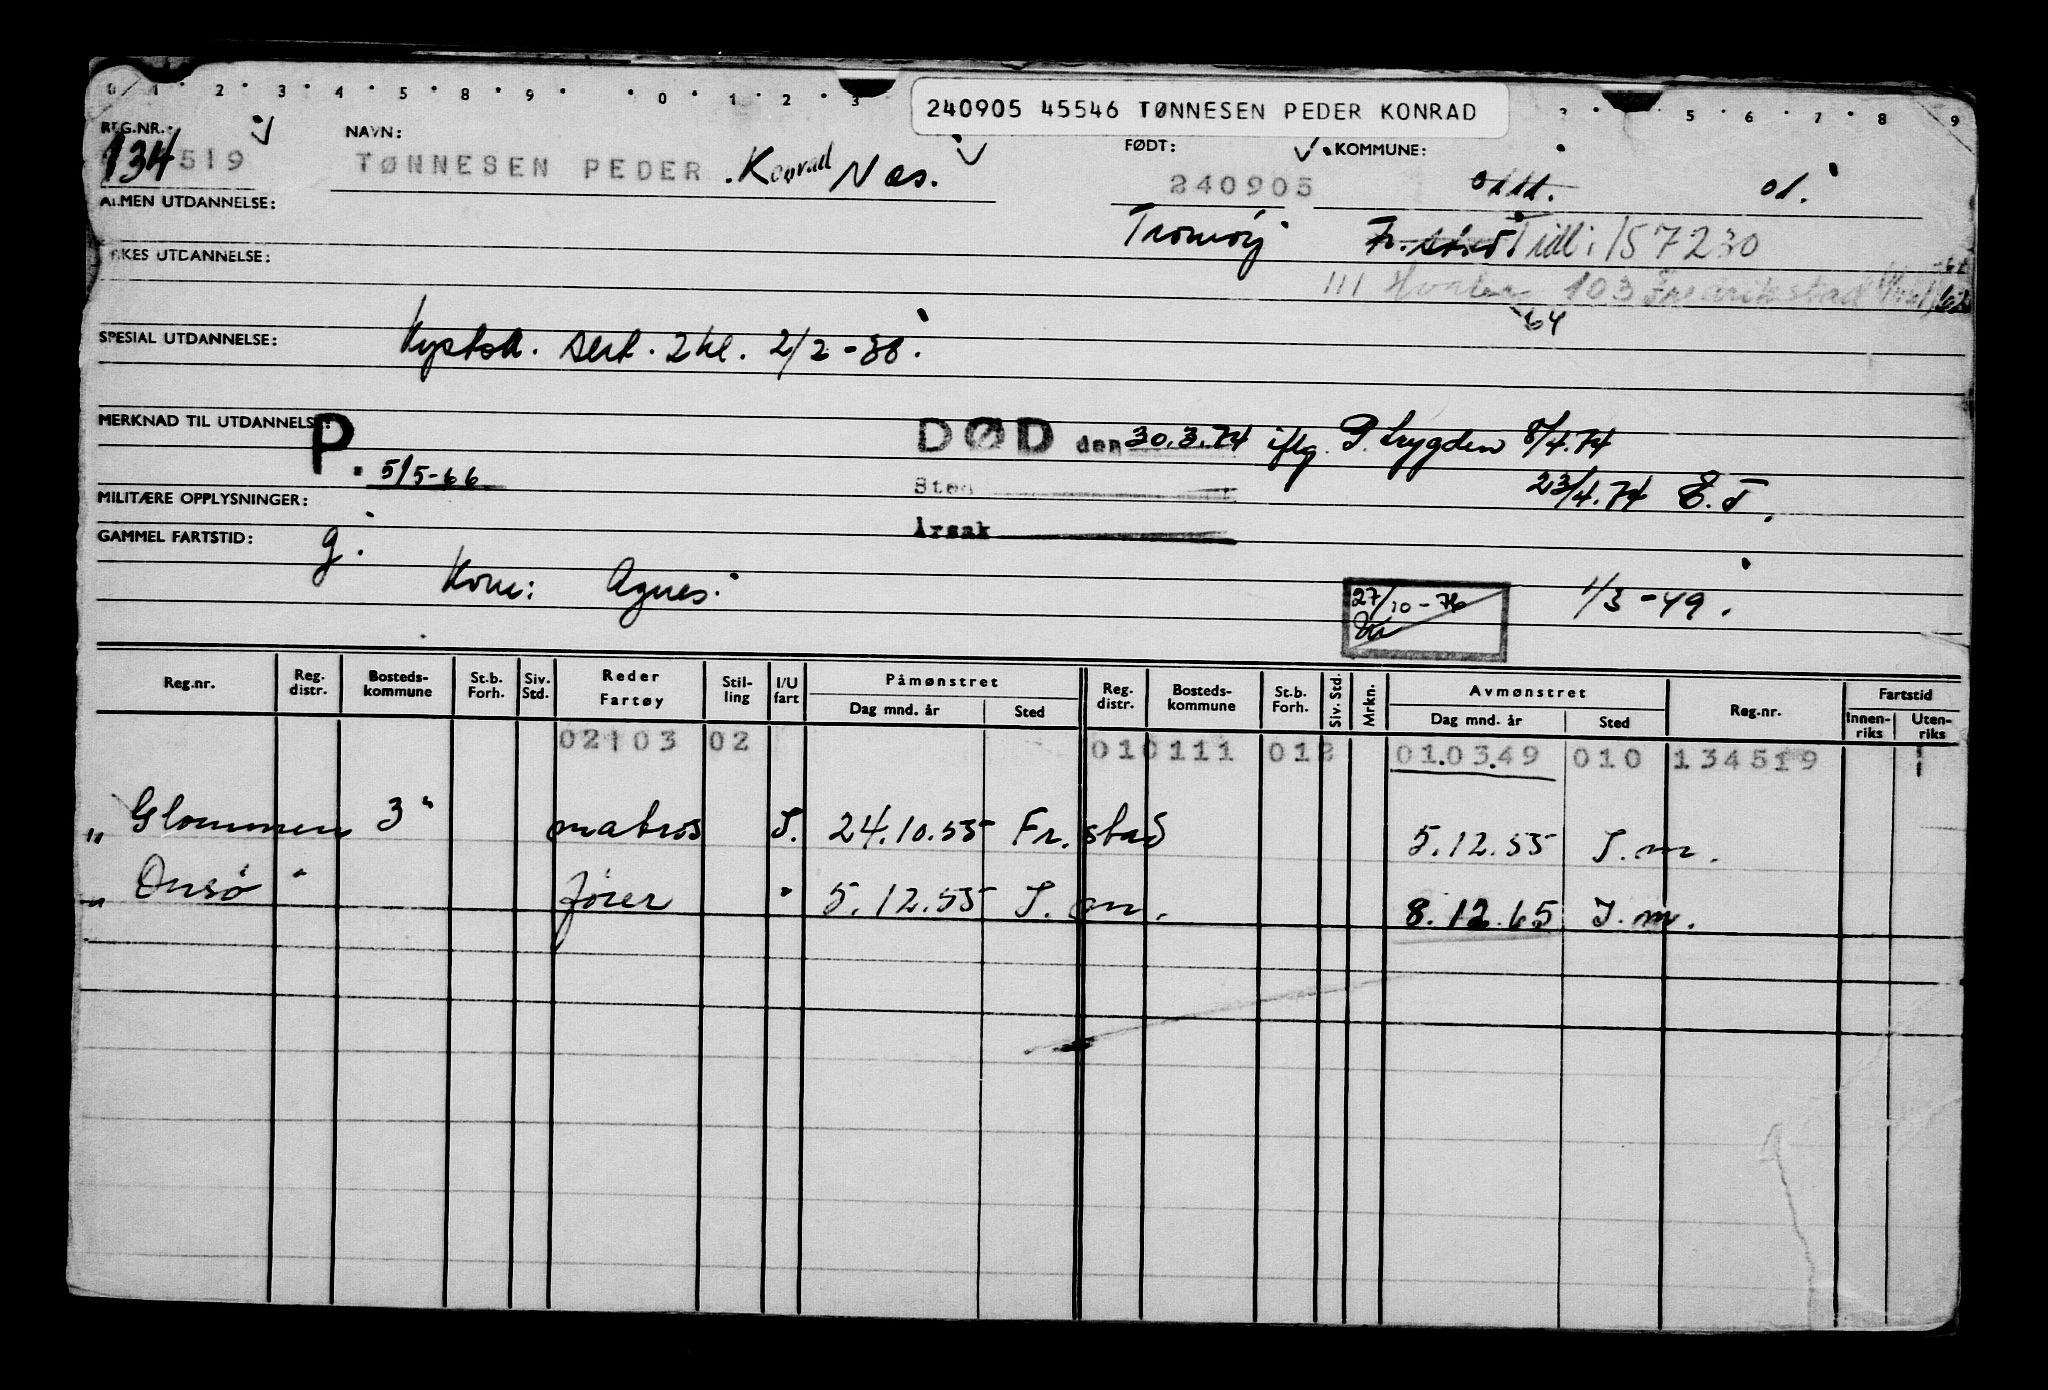 0 1 2 3 4 5 8 9 0 1 2 3 5 6 7 8 9
240905 45546 TØNNESEN PEDER KONRAD
REG.NR.: NAVN: FØDT: KOMMUNE:
134519 TØNNESEN PEDER . Konrad Næs. 240905 0111. 01.
ALMEN UTDANNELSE: Tromøy Fr.stad Tidl: 157230
YRKES UTDANNELSE: 111 Hvaler 103 Fredrikstad
64
SPESIAL UTDANNELSE: Kystsk. sert. 2 kl. 2/2-38.
MERKNAD TIL UTDANNELSE: P. 5/5-66 DØD den 30.3.74 iflg. P. trygden 8/4.74
Sted 23/4.74 E.T.
MILITÆRE OPPLYSNINGER:
Årsak
GAMMEL FARTSTID: g.
Kom: Agnes. 27/10-76 1/3-49.
Reg.nr. Reg. distr. Bosteds-kommune St.b. Forh. Siv. Std. Reder Fartøy Stil-ling I/U fart Påmønstret Dag mnd. år Sted Reg. distr. Bosteds-kommune St.b. Forh. Siv. Std. Mrkn. Avmønstret Dag mnd. år Sted Reg.nr. Fartstid Innen-riks Uten-riks
02103 02 010111 012 01.03.49 010 134519
" Glommen 3" matros I. 24.10.55 Fr.stad 5.12.55 I.m.
" Onsø " fører " 5.12.55 I.m. 8.12.65 I.m.